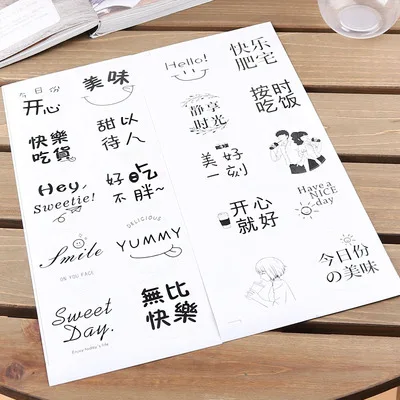 今日份
开心
美味
快樂
吃貨
甜以
待人
Hey,
Sweetie!
好吃
不胖~
Smile
ON YOU FACE
DELICIOUS
YUMMY
Sweet
Day.
Enjoy today's life
無比
快樂
Hello!
快乐
肥宅
静享
时光
按时
吃饭
美好
一刻
Have a
NICE
day
开心
就好
今日份
の美味